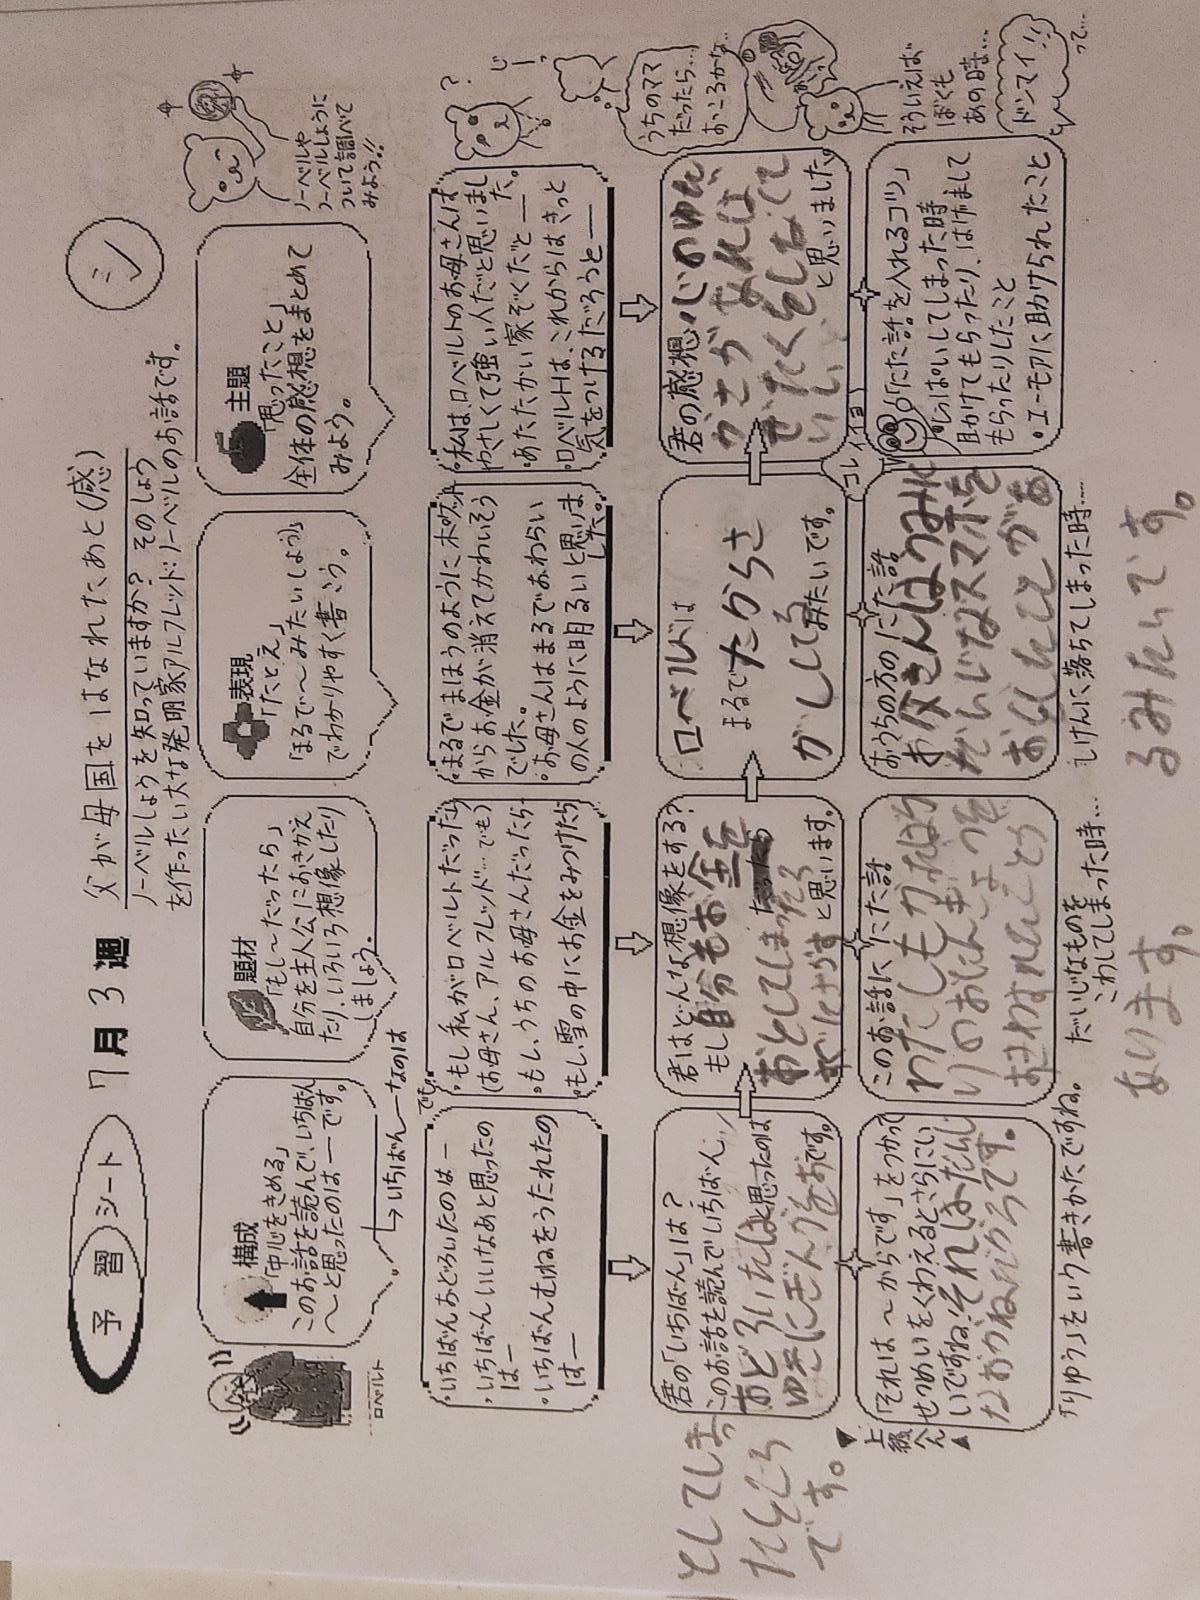 予習シート 7月3週 父が母国をはなれたあと(感) シ
ノーベルしょうを知っていますか? そのしょう
を作ったい大な発明家アルフレッド・ノーベルのお話です。
ロベルト
構成
「中心をきめる」
このお話を読んで、いちばん
〜と思ったのは――です。
いちばん――なのは
題材
「もし〜だったら」
自分を主人公におきかえ
たり、いろいろ想像したり
しましょう。
表現
「たとえ」
「まるで〜みたいしょう」
でわかりやすく書こう。
主題
「思ったこと」
全体の感想をまとめて
みよう。
ノーベルや
ノーベルしょうに
ついて調べて
みよう!!
・いちばんおどろいたのは―
・いちばんいいなあと思ったの
は――
・いちばんむねをうたれたの
は――
でも。
・もし私がロベルトだったら
(お母さん、アルフレッド…でも)
・もし、うちのお母さんだったら
・もし雪の中にお金をみつけたら
・まるでまほうのようにポケット
からお金が消えてかわいそう
でした。
・お母さんはまるでおわらい
の人のように明るいと思いま
した。
・私は、ロベルトのお母さんは
やさしくて強い人だと思いまし
た。
・あたたかい家ぞくだと――
・ロベルトは、これからはきっと
気をつけるだろうと――
?
じーっ
君の「いちばん」は?
このお話を読んでいちばん、
おどろいたはと思ったのは
ゆきにぎんかをおです。
としてしまっ
たところ
です。
君はどんな想像をする?
もし自分もお金を
おとしてしまったら
すぐにさがすと思います。
ロベルトは
まるでたからさ
がしてるみたいです。
君の感想
心のゆた
かさがあれば
ぜいたくをしなくて
いいと思いました。
うちのママ
だったら…
おこるかな…
▼上級へん▲
「それは〜からです」をつかって
せつめいをくわえるとさらにい
いですね。それはだいじ
なおかねだからです。
「りゆう」をいう書きかたですね。
このお話ににた話
だいじなものを
こわしてしまった時…
おうちの方のにた話
お父さんはうみに
だいじなスマホを
おとしたことがあ
しけんに落ちてしまった時…
るみたいです。
コレイイヨ
「にた話を入れるコツ」
・しっぱいしてしまった時
助けてもらったり、はげまして
もらったりしたこと
・ユーモアに助けられたこと
そういえば
ぼくも
あの時…
ドンマイ!!
って…
あります。